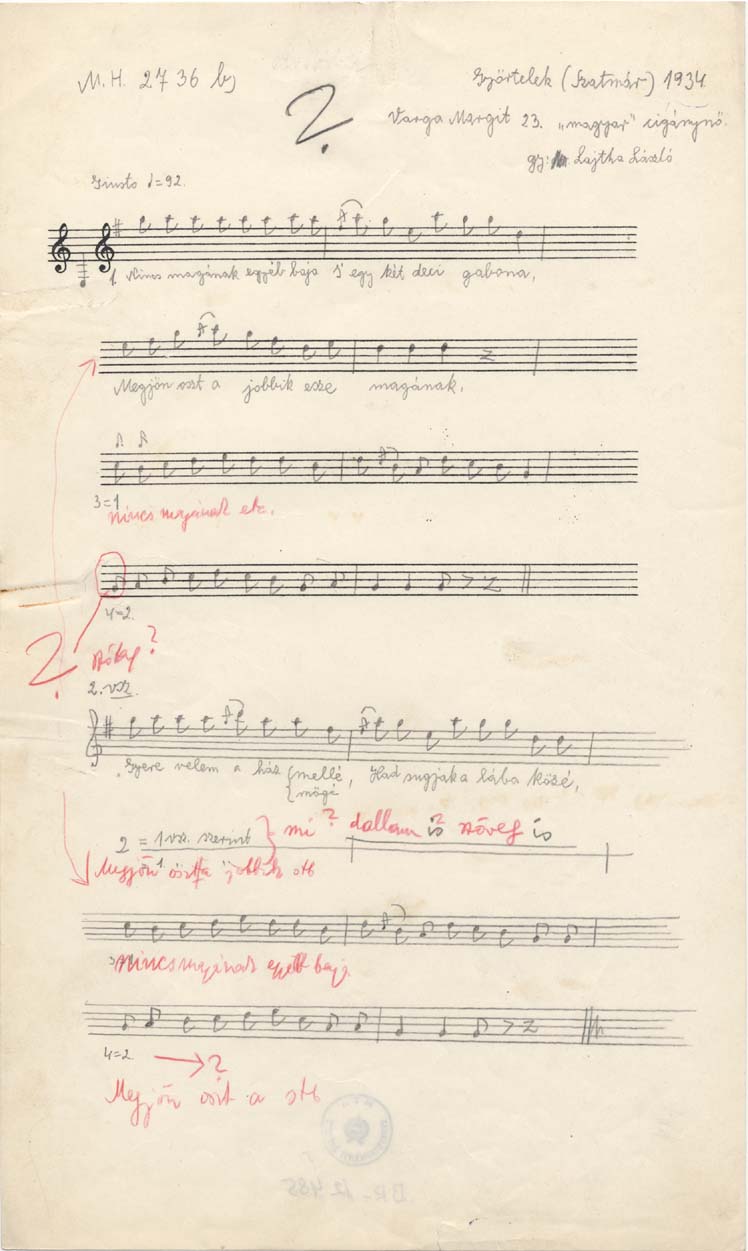 M.H. 2736 b)
Györtelek (Szatmár) 1934
?
Varga Margit 23. „magyar" cigánynő.
gy: Lajtha László
Giusto ♩=92.
1. Nincs magának egyéb baja S' egy két deci gabona,
Megjön oszt a jobbik esze magának.
3=1
nincs magának etc.
4=2.
?
?
2. vsz.
Gyere velem a ház {mellé, Had rugjak a lába közé,
{mögé
2 = 1 vsz. szerint } mi? dallam is? szöveg is
Megjön oszt a jobbik stb
nincs magának egyéb baja
4=2. → ?
Megjön oszt a stb
BR-12485